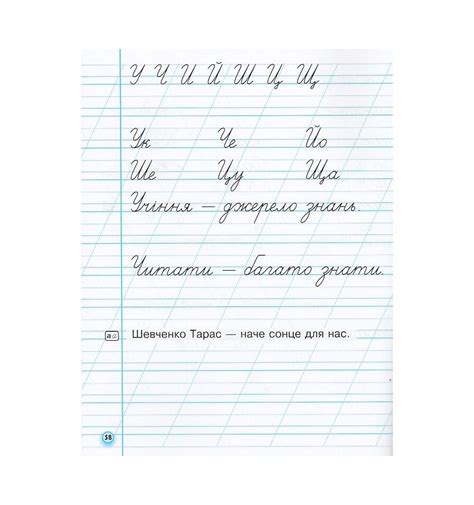 У Ч И Й Ш Ц Щ
Ук Че Йо
Ше Цу Ща
Учіння — джерело знань.
Читати — багато знати.
Шевченко Тарас — наче сонце для нас.
58